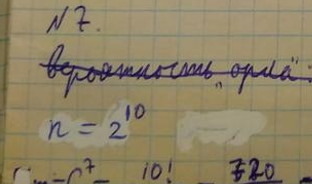 N 7.
вероятность "орла":
n = 2^10
m = C^7 = 10! = 720 =